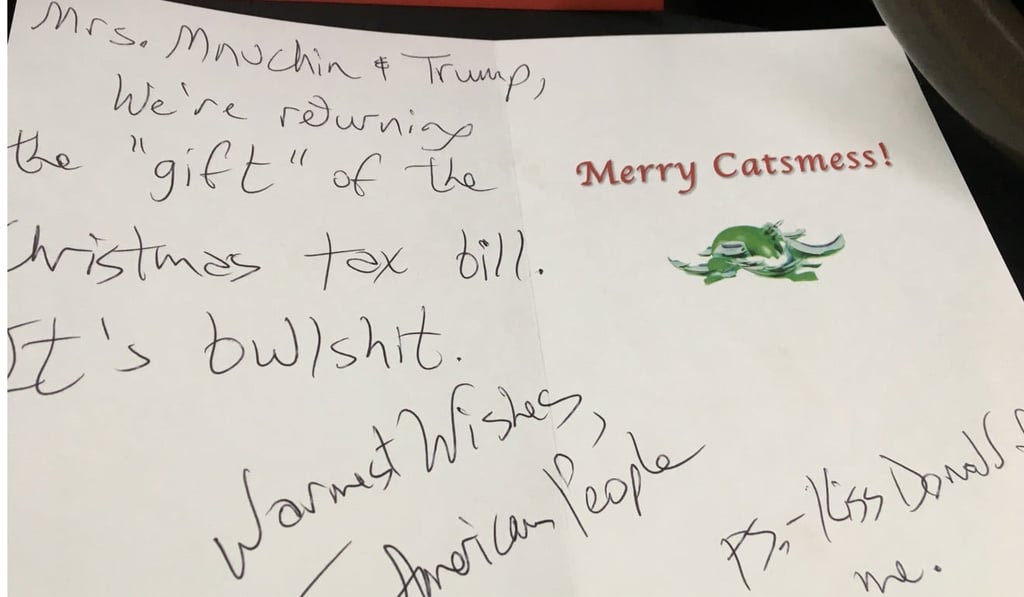 Mrs. Mnuchin & Trump,
We're returning
the "gift" of the
Christmas tax bill.
It's bullshit.
Warmest Wishes,
— American People
P.S. - Kiss Donald f
me.
Merry Catsmess!